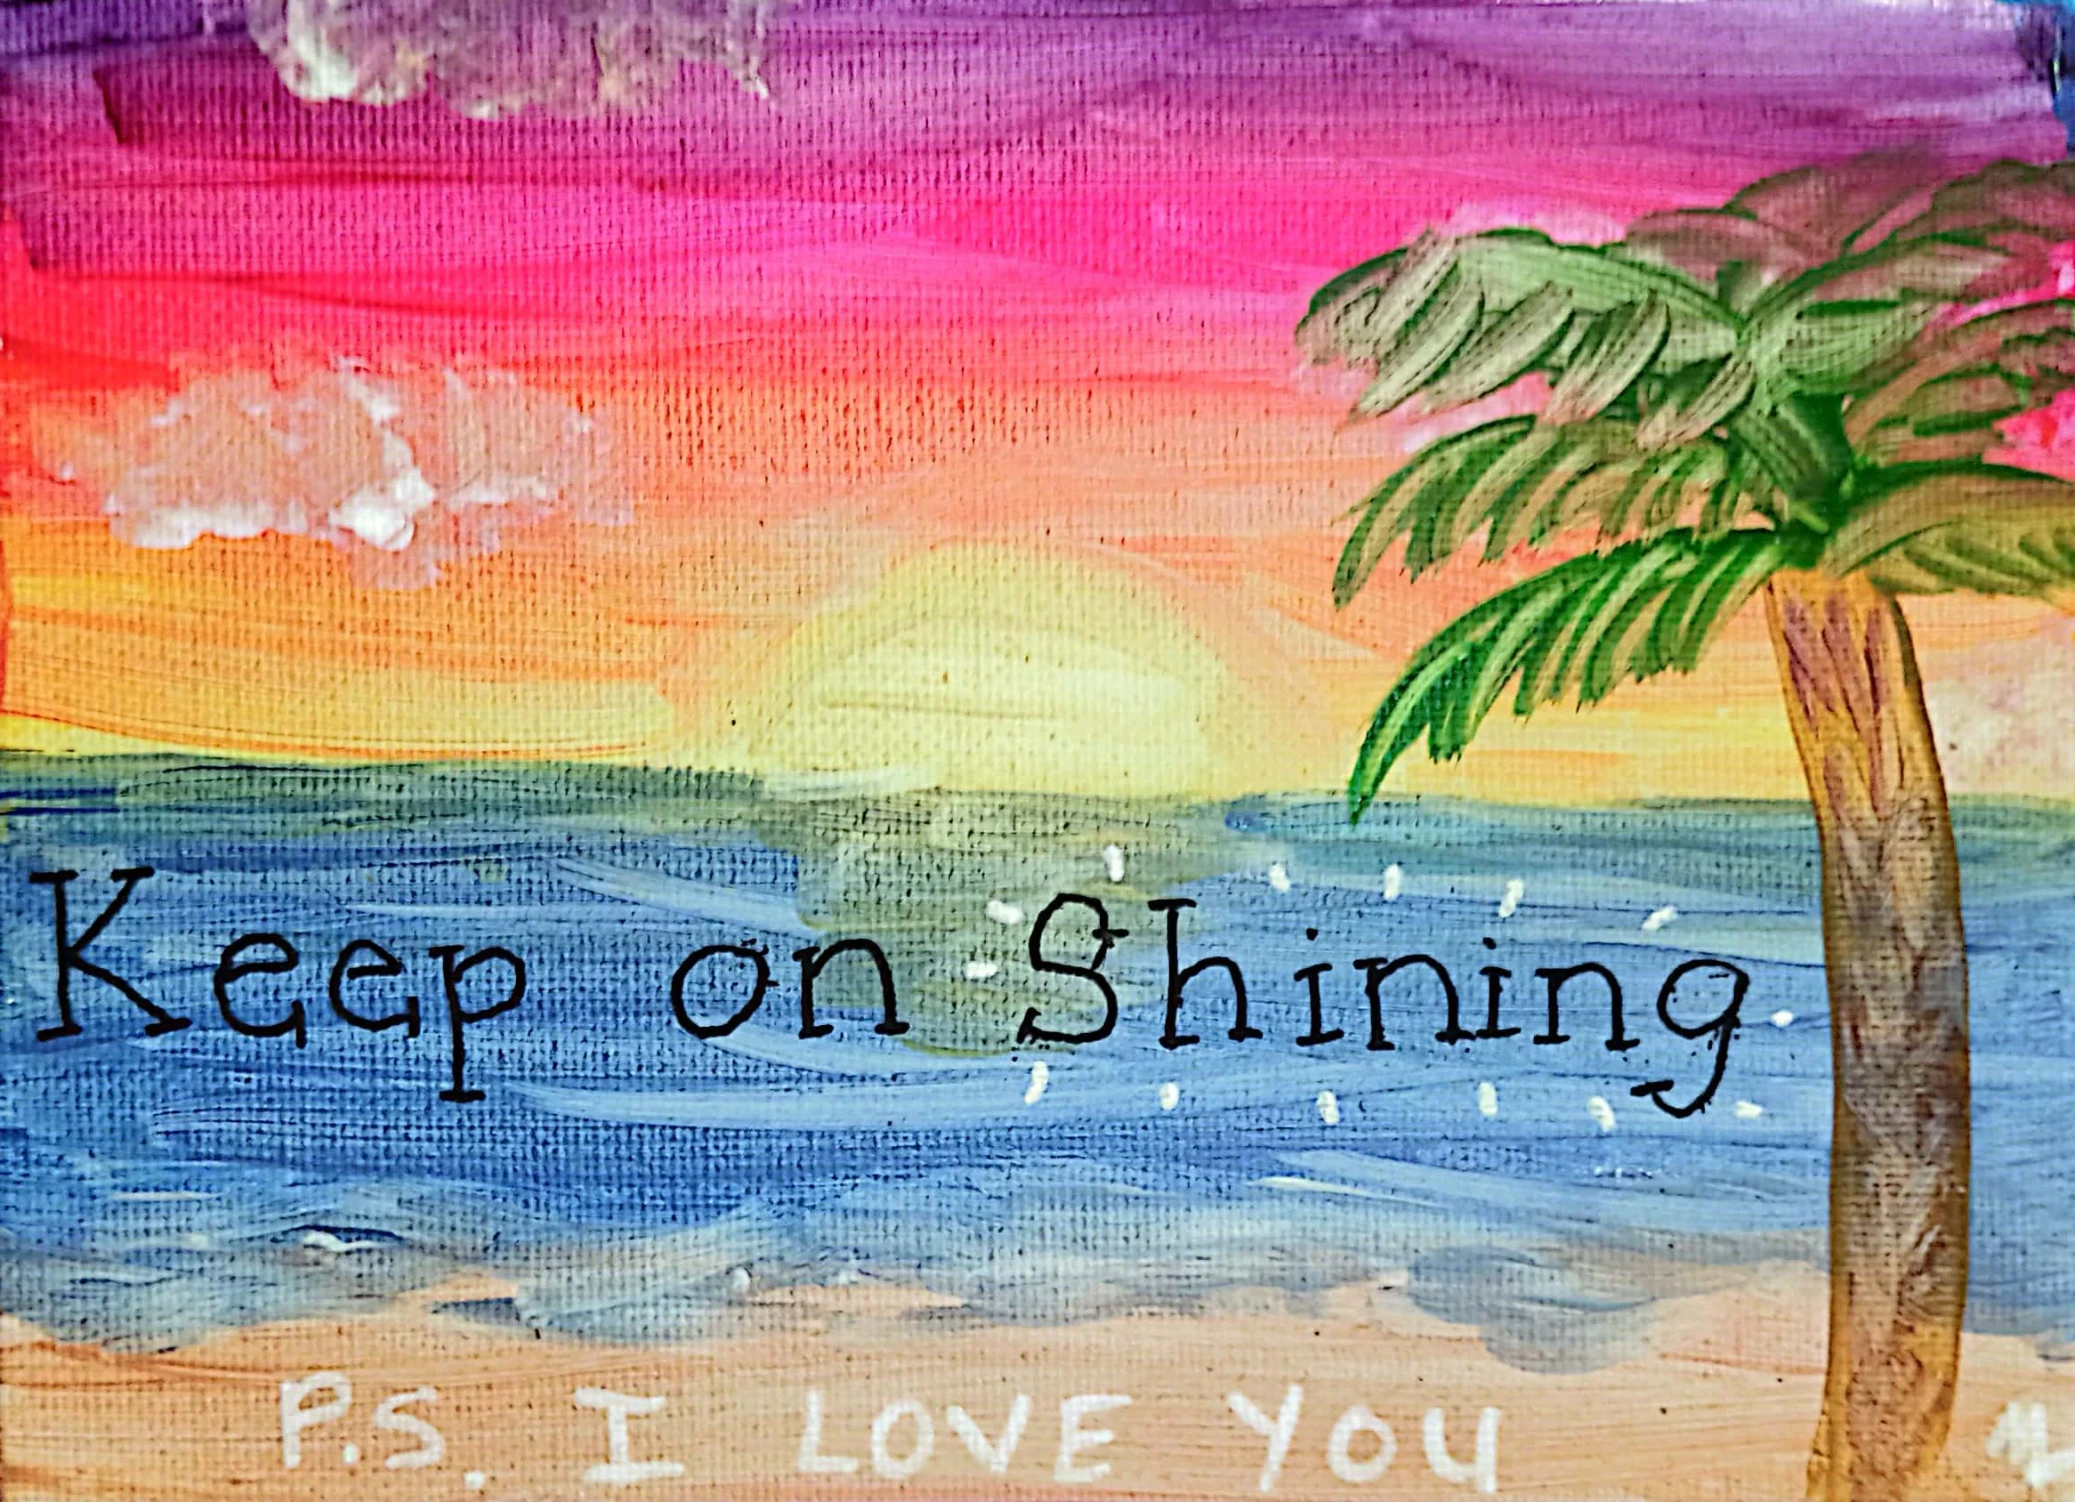 Keep on Shining
P.S. I LOVE YOU